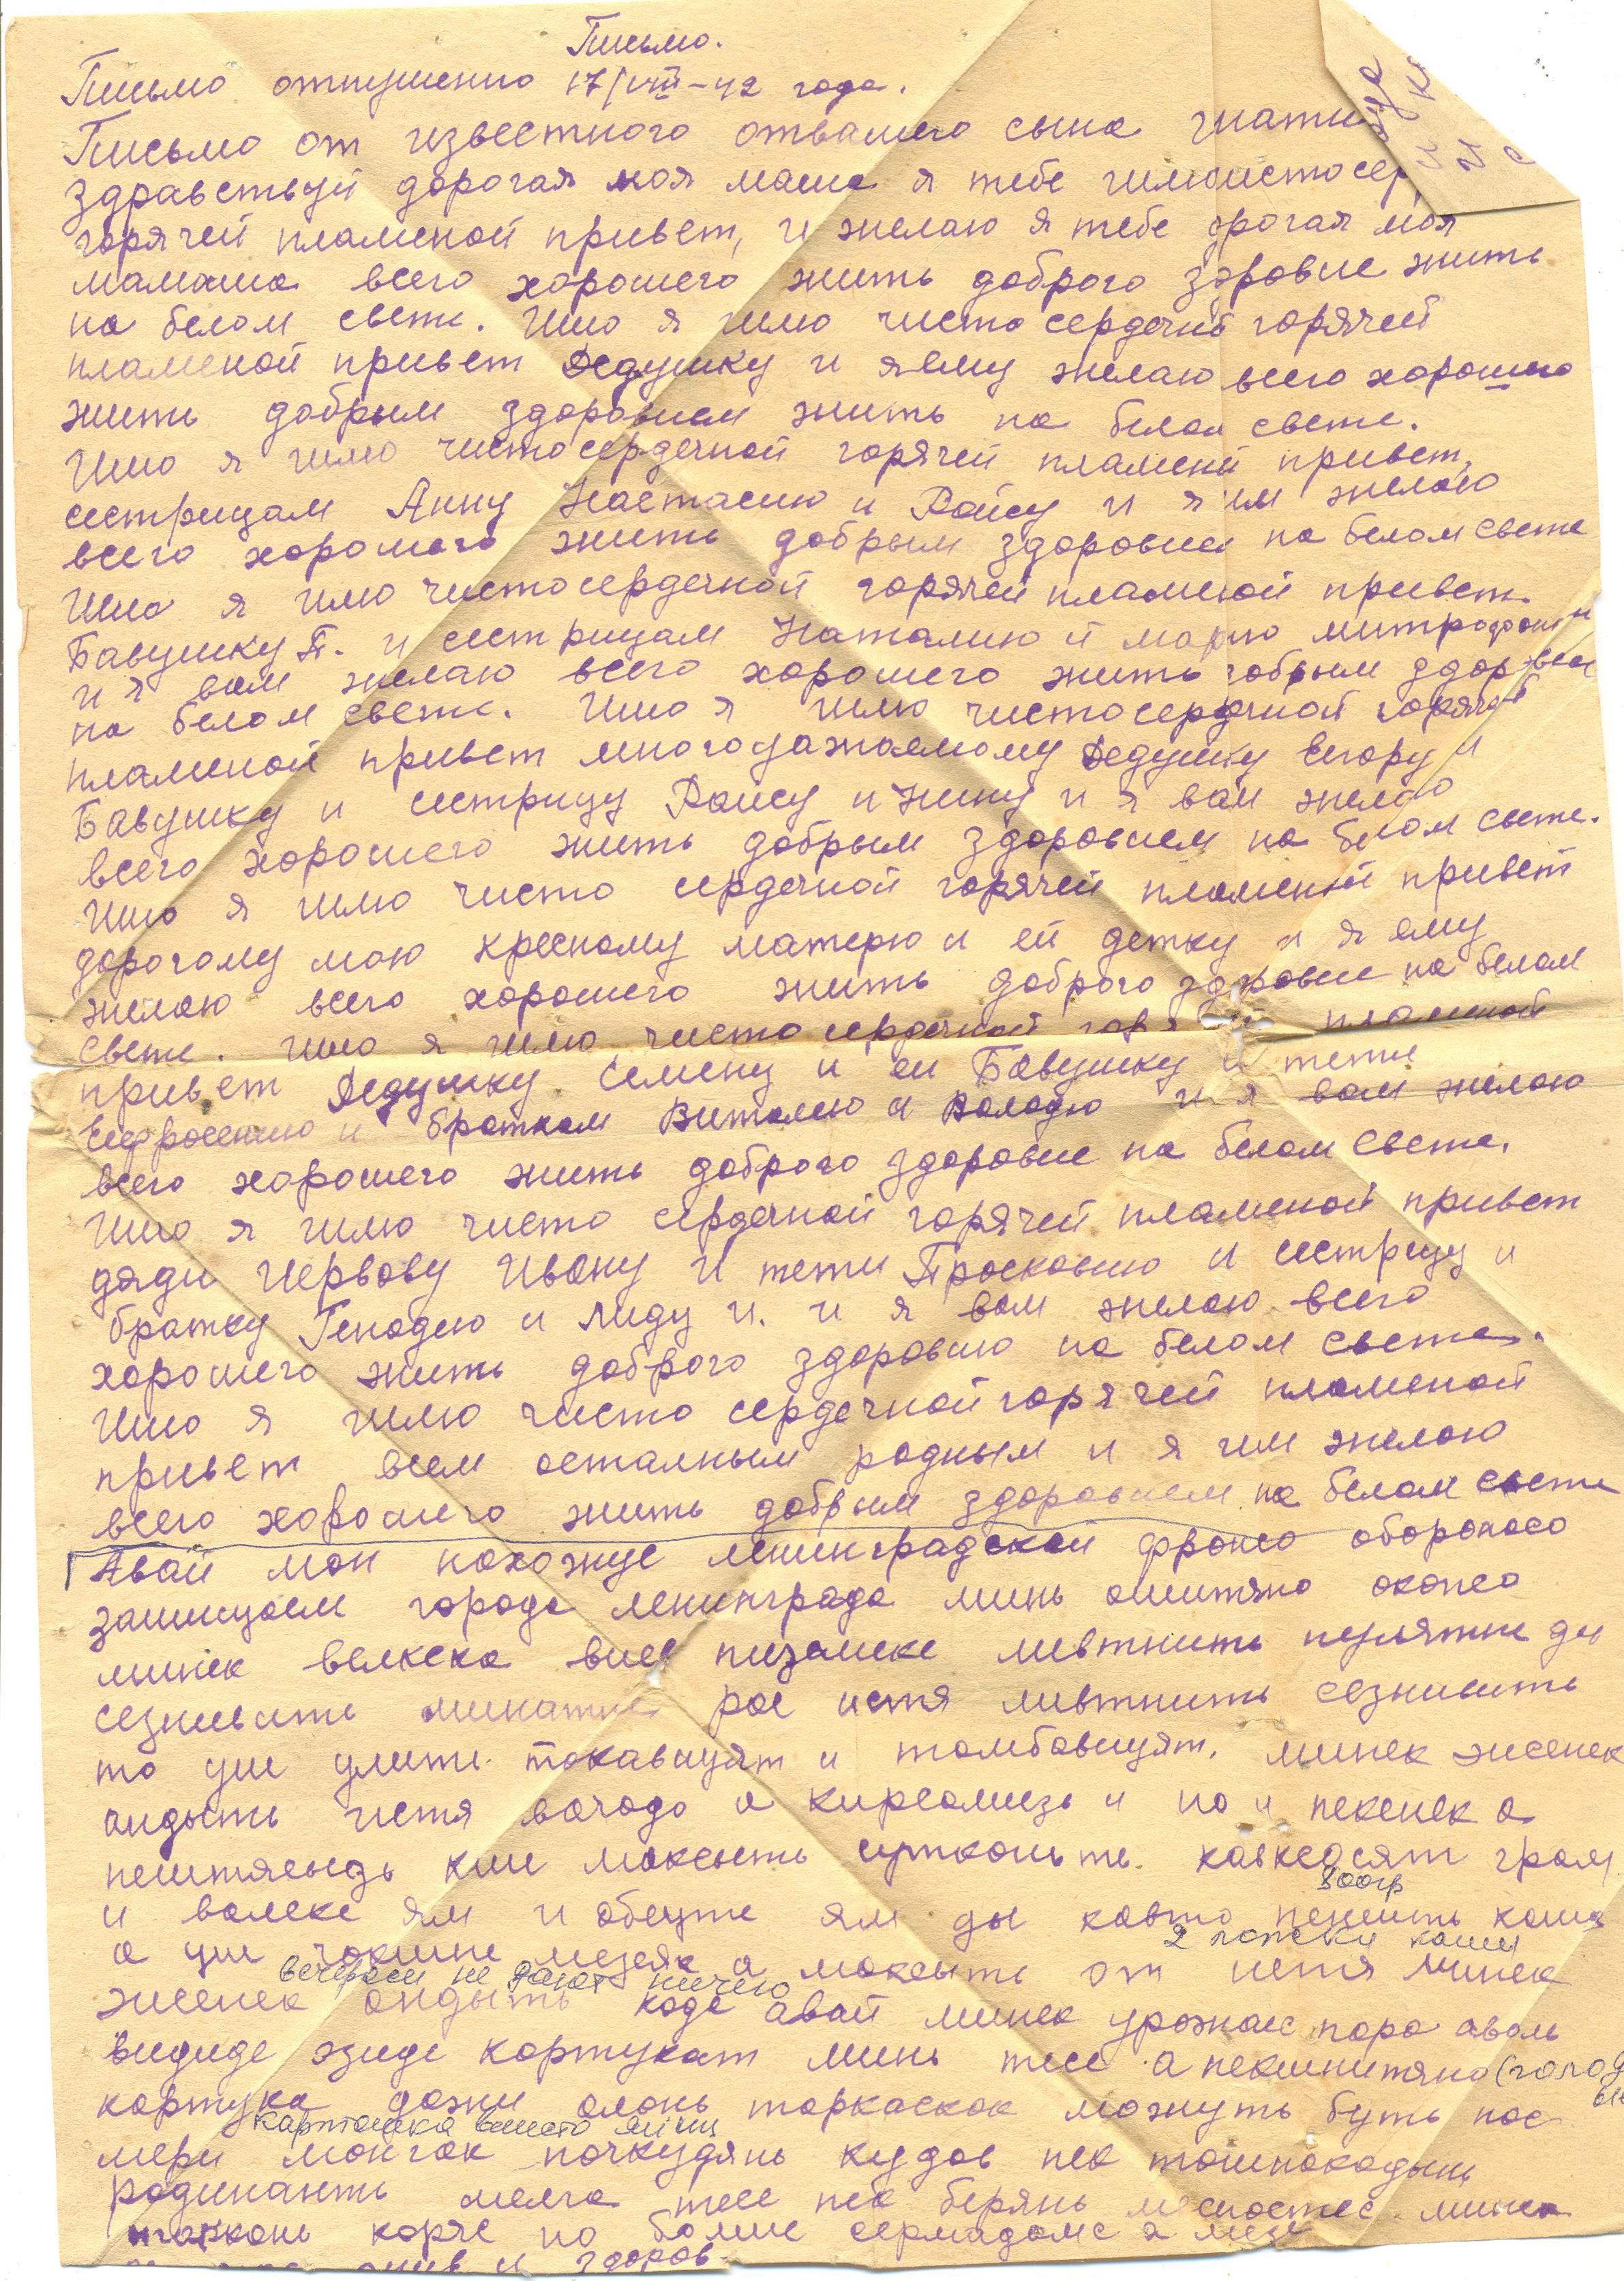 Письмо.
Письмо отпушенно 17/VIII-42 года.
Письмо от известного отвашего сына гнати
Здравствуй дорогая моя маша я тебе чимистосер
горячей пламеной привет, и желаю я тебе дрогая моя
мамаша всего хорошего жить доброго здоровие жить
на белом свети. Ишо я шлю чисто сердечной горячей
пламеной привет Дедушку и я ему желаю всего хорошего
жить добрым здоровием жить на белом свети.
Ишо я шлю чистосердечной горячей пламеной привет,
сестрицам Анну Настасию и Раису и я им желаю
всего хорошого жить добрым здоровием на белом свети
Ишо я шлю чистосердечной горячей пламеной привет.
Бавушку Т. и сестрицам Наталию и марю митрофони
и я вам желаю всего хорошего жить добрым здоровием
на белом свети. Ишо я шлю чистосердечной горячей
пламеной привет многоуважаемому Дедушку Егору и
Бавушку и систрицу Раису и Нину и я вам желаю
всего хорошего жить добрым здоровием на белом свети.
Ишо я шлю чисто сердечной горячей пламеной привет
дорогому мою кресному матерю и ей детку и я ему
желаю всего хорошего жить доброго здоровие на белом
свети. ишо я шлю чисто сердечной горя пламеной
привет Дедушку Семену и ей Бавушку и тети
Ефросению и браткам Виталию и Володю и я вам желаю
всего хорошего жить доброго здоровие на белом свети.
Ишо я шлю чисто сердечной горячей пламеной привет
дяди Червову Ивану и тети Просковию и систрицу и
братку Генадею и Лиду и. и я вам желаю всего
хорошего жить доброго здоровию на белом свети.
Ишо я шлю чисто сердечной горячей пламеной
привет всем осталным родным и я им желаю
всего хорошего жить добрым здоровием на белом свети
Авай мон нахожус ленинградской фронсо оборонасо
защищаем города ленинграда минь аштяно окопсо
минек велкска вие пиземекс ливтнить пулятне ды
сезнивить минатне рас истя ливтнить сезнивить
то уш улить токавицят и томбавицят. минек женек
андыть истя вачодо а кирсамизь и но и пекенек а
пештясыдь кши максыть сутконьте. кавксосят грам
800гр
и валске ям и обедте ям ды кавто пеништь каша
2 ложки каши
а уш чокшне мезеяк а максыть от истя минек
вечером не дают ничего
женек андыть кода авай минек урожаис паро аволь
видиде эзиде картукат минь тесе а пекшнитяно (голод
картука дажи алонь таркаскак можуть быть нас
картошка вместо яйцы
мери монгак почкудянь кудов пек тошнакадынь
родинанть мелга тесе пек берянь месностес минек
тарконь каряс но больше сермадомс а мезе
жив и здоров